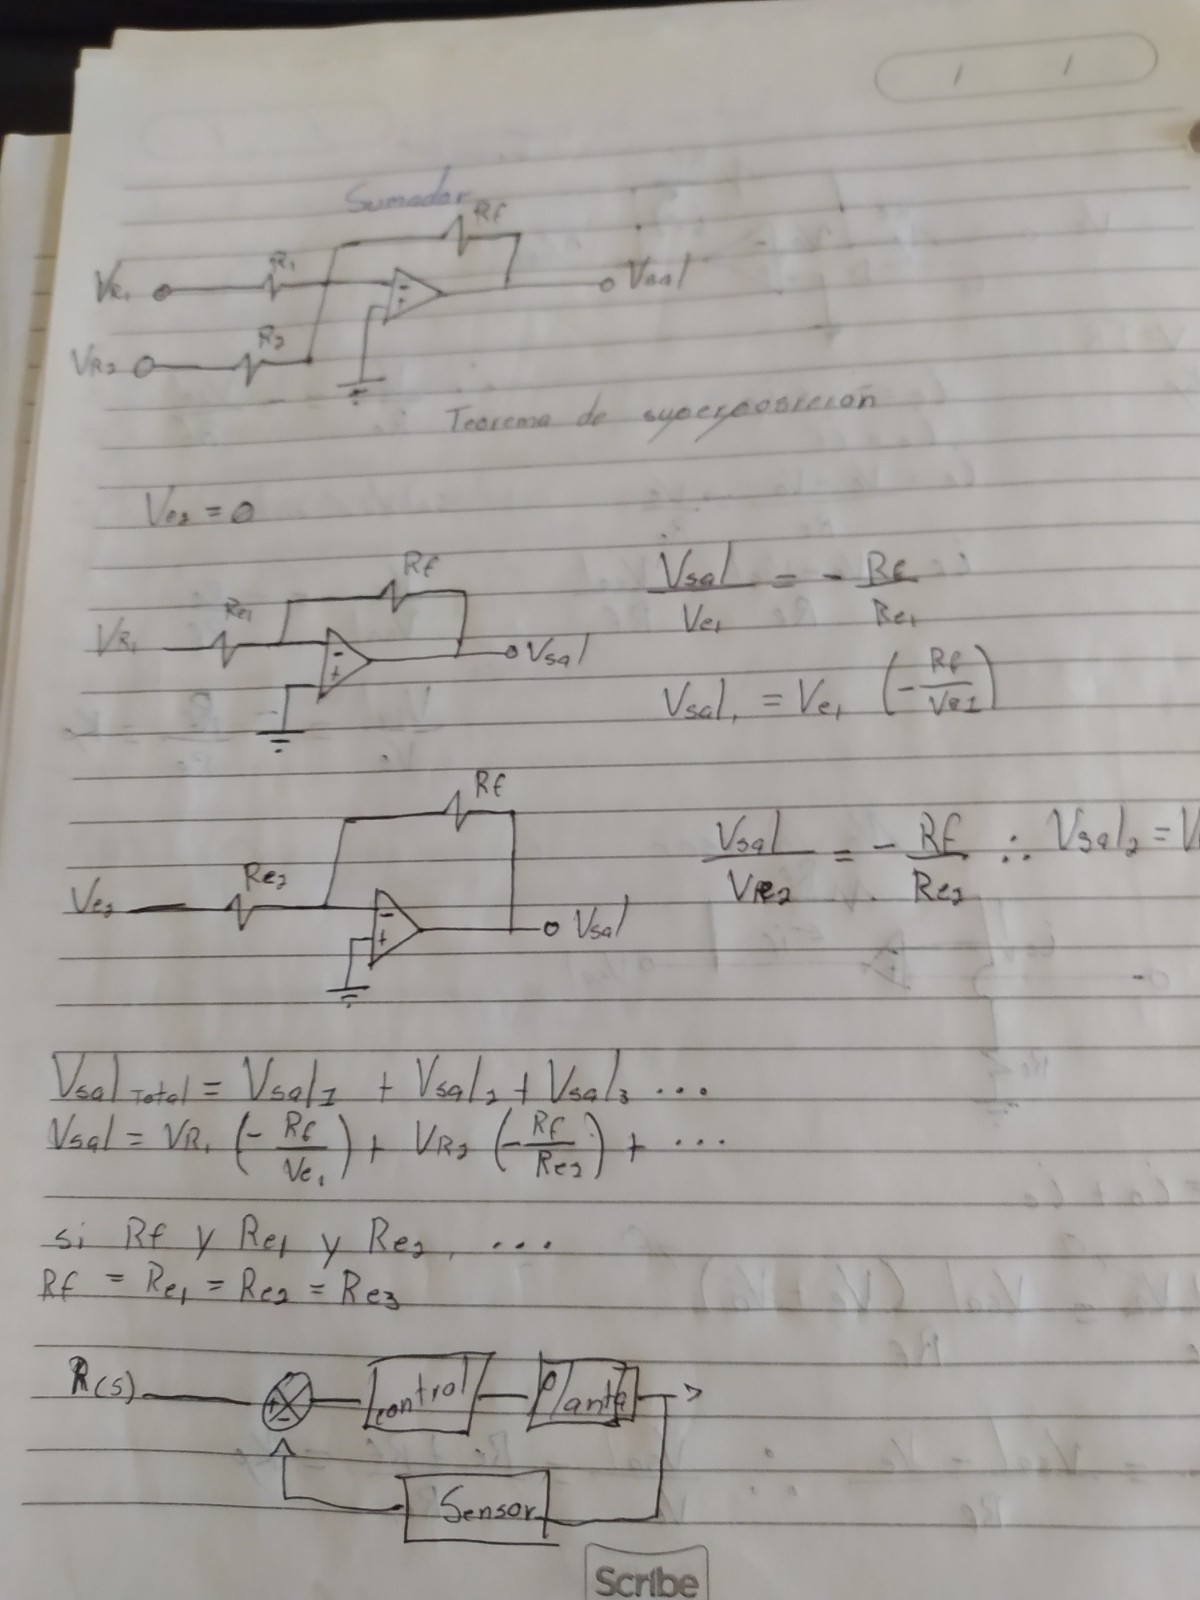 / /
Sumador
Rf
VR1 R1 - + Vsal
VR2 R2
Teorema de superposición
Ve2 = 0
Rf
VR1 Re1 - + Vsal
Vsal / Ve1 = - Rf / Re1
Vsal1 = Ve1 (- Rf / Ve1)
Rf
Ve2 Re2 - + Vsal
Vsal / VRe2 = - Rf / Re2 ∴ Vsal2 = V
Vsal Total = Vsal1 + Vsal2 + Vsal3 ...
Vsal = VR1 (- Rf / Ve1) + VR2 (- Rf / Re2) + ...
si Rf y Re1 y Re2, ...
Rf = Re1 = Re2 = Re3
R(s) + - control Planta
Sensor
Scribe